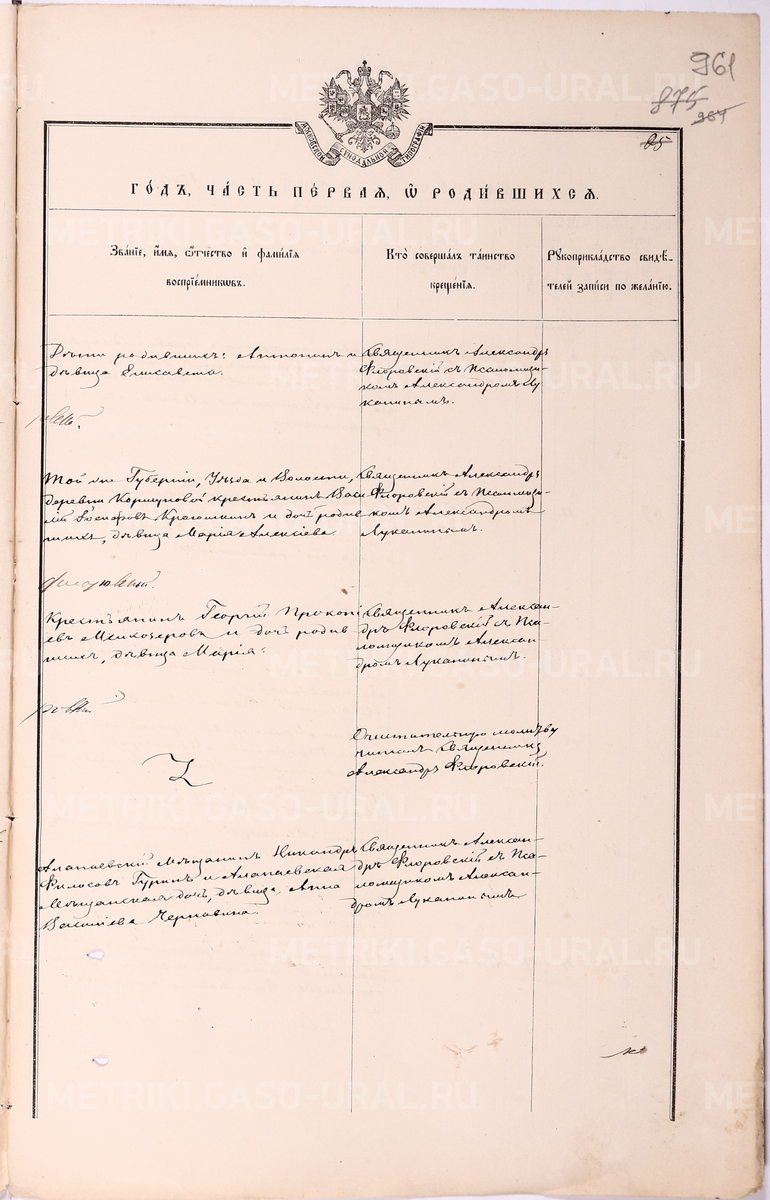 961
875
984
85
МОСКОВСКОЙ СѴНОДАЛЬНОЙ ТИПОГРАФІИ
ГО́ДЪ, ЧА́СТЬ ПЕ́РВАЯ, Ѡ РОДИ́ВШИХСЯ.
Зва́нїе, и҆́мя, ѻ҆́тчество и҆ фами́лїя
воспрїе́мниковъ.
Кто̀ соверша́лъ та́инство
креще́нїя.
Рꙋкоприкла́дство свидѣ́-
телей за́писи по жела́нїю.
Дѣти родившихъ: Антонинъ и
дѣвица Елисавета.
Священникъ Александръ
Флоровскій съ Псаломщи-
комъ Александромъ Лу-
канинымъ.
Той же Губерніи, Уѣзда и Волости,
деревни Коршуновой крестьянинъ Васи
лій и дочь родив
шихъ, дѣвица Марія Алексіева.
Священникъ Александръ
Флоровскій съ Псаломщи-
комъ Александромъ
Луканинымъ.
Крестьянинъ Георгій Прокопі
евъ и дочь родив
шихъ, дѣвица Марія.
Священникъ Алексан-
дръ Флоровскій съ Пса-
ломщикомъ Алексан-
дромъ Луканинымъ.
Очистительную молитву
читалъ Священникъ
Александръ Флоровскій.
Алапаевскій Мѣщанинъ Никандръ
Гуринъ и Алапаевская
Мѣщанская дочь, дѣвица Анна
Василіева Чернавина.
Священникъ Алексан-
дръ Флоровскій съ Пса-
ломщикомъ Алексан-
дромъ Луканинымъ.
METRIKI.GASO-URAL.RU